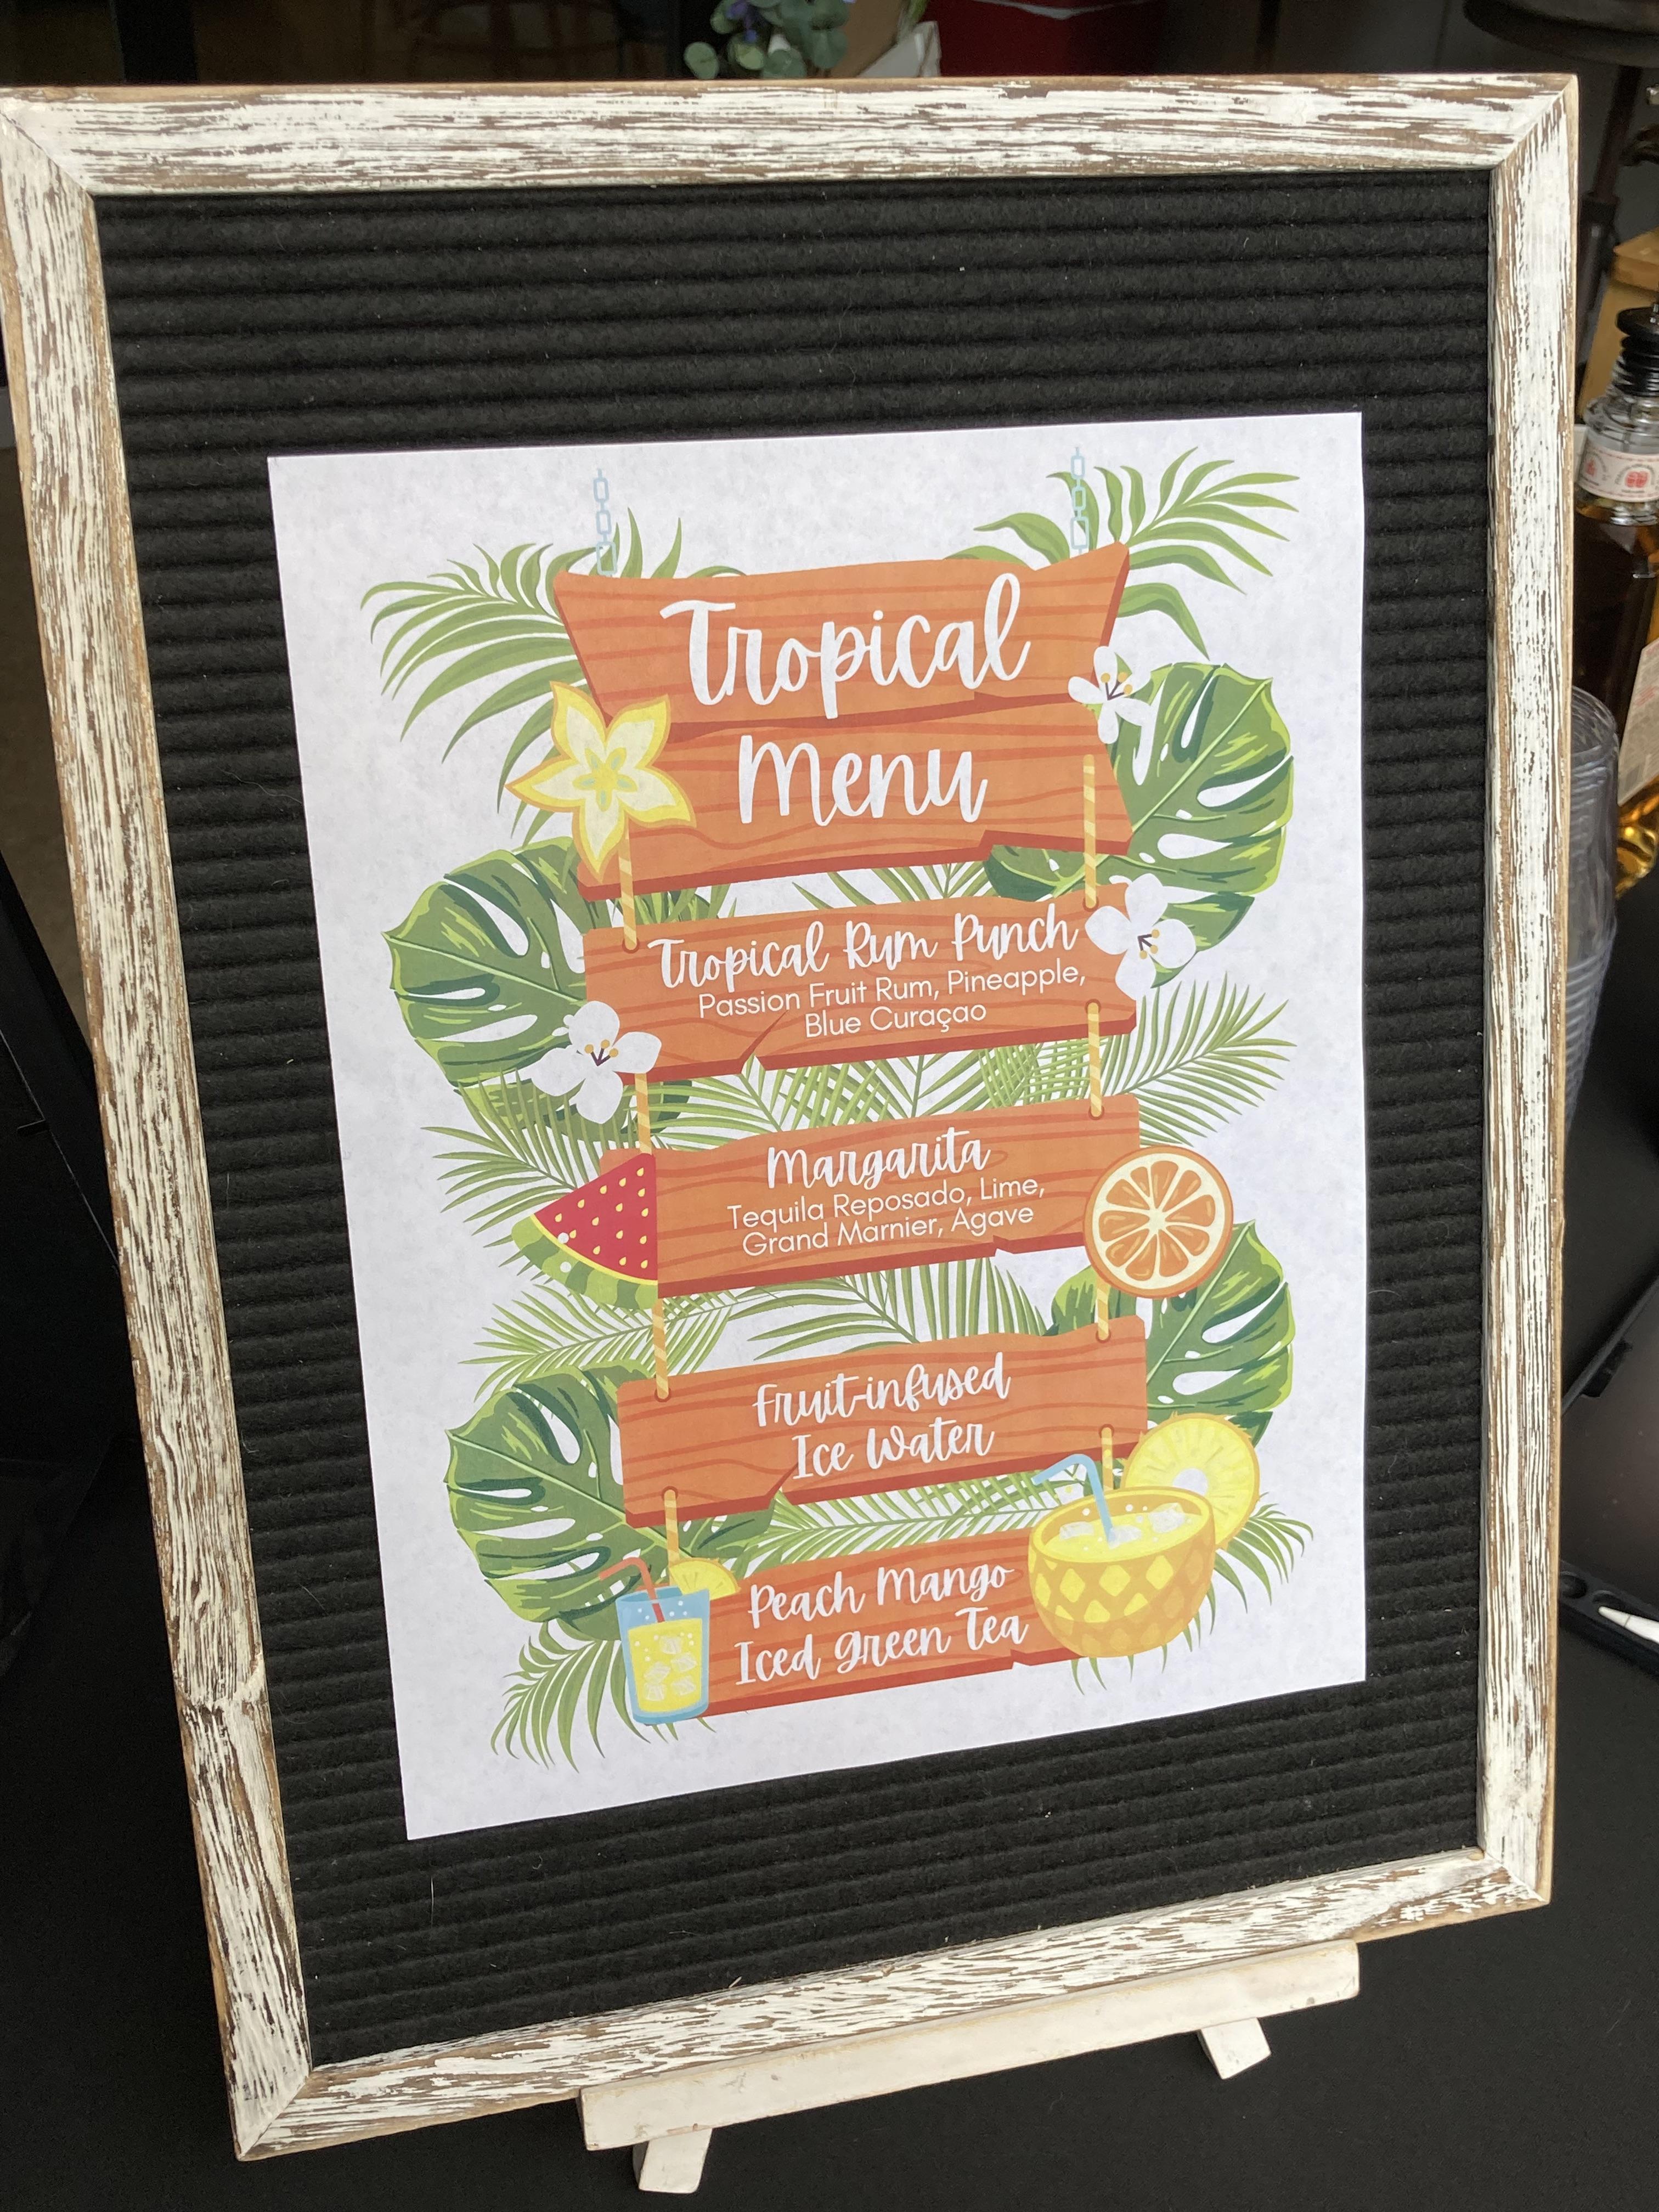 Tropical
Menu
Tropical Rum Punch
Passion Fruit Rum, Pineapple,
Blue Curaçao
Margarita
Tequila Reposado, Lime,
Grand Marnier, Agave
Fruit-infused
Ice Water
Peach Mango
Iced Green Tea